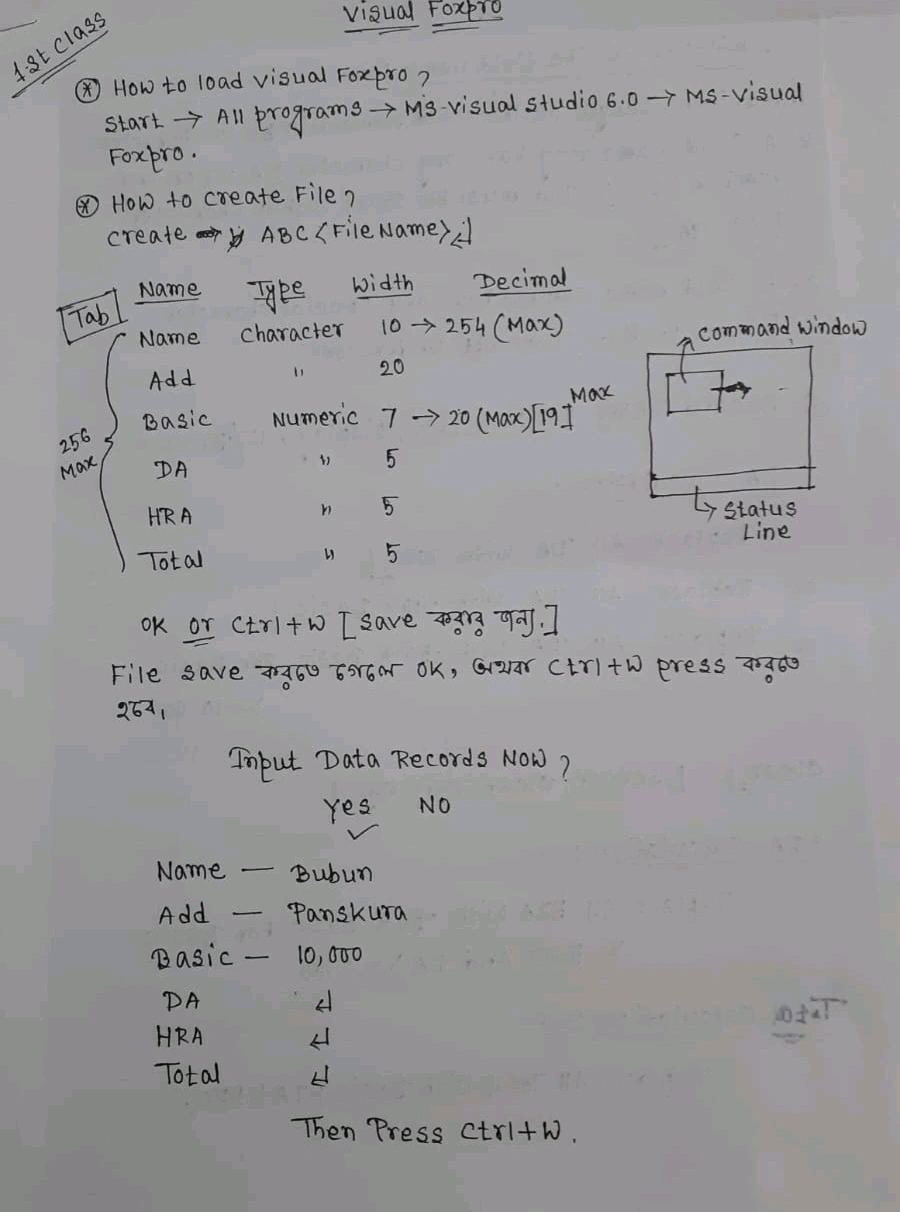 1st Class
Visual Foxpro
* How to load visual Foxpro ?
Start → All programs → MS-visual studio 6.0 → MS-visual
Foxpro.
* How to create File ?
create ABC <File Name> ↵
Name Type Width Decimal
Tab
Name Character 10 → 254 (Max)
Add " 20
Basic Numeric 7 → 20 (Max) [19] Max
DA " 5
HRA " 5
Total " 5
256
Max
command window
Status
Line
OK or Ctrl+W [save করার জন্য.]
File save করতে গেলে OK, অথবা Ctrl+W press করতে
হবে।
Input Data Records Now ?
Yes NO
✓
Name — Bubun
Add — Panskura
Basic — 10,000
DA ↵
HRA ↵
Total ↵
Then Press Ctrl+W.